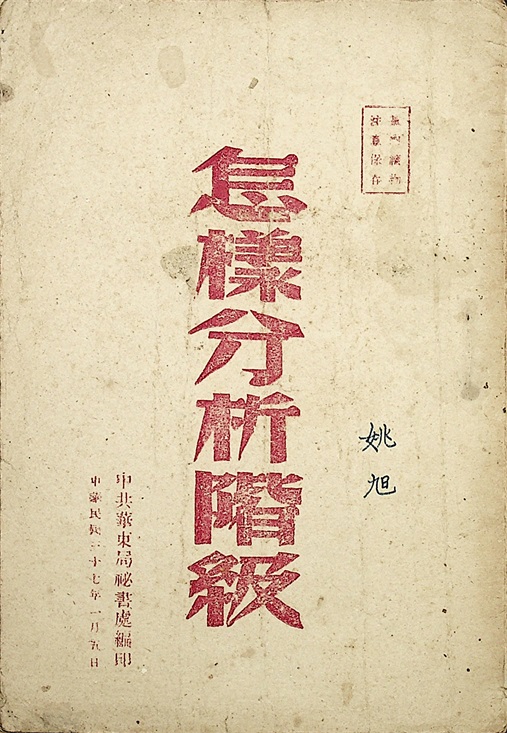 黨內讀物
注意保存
怎樣分析階級
姚旭
中共華東局秘書處編印
中華民國三十七年一月五日